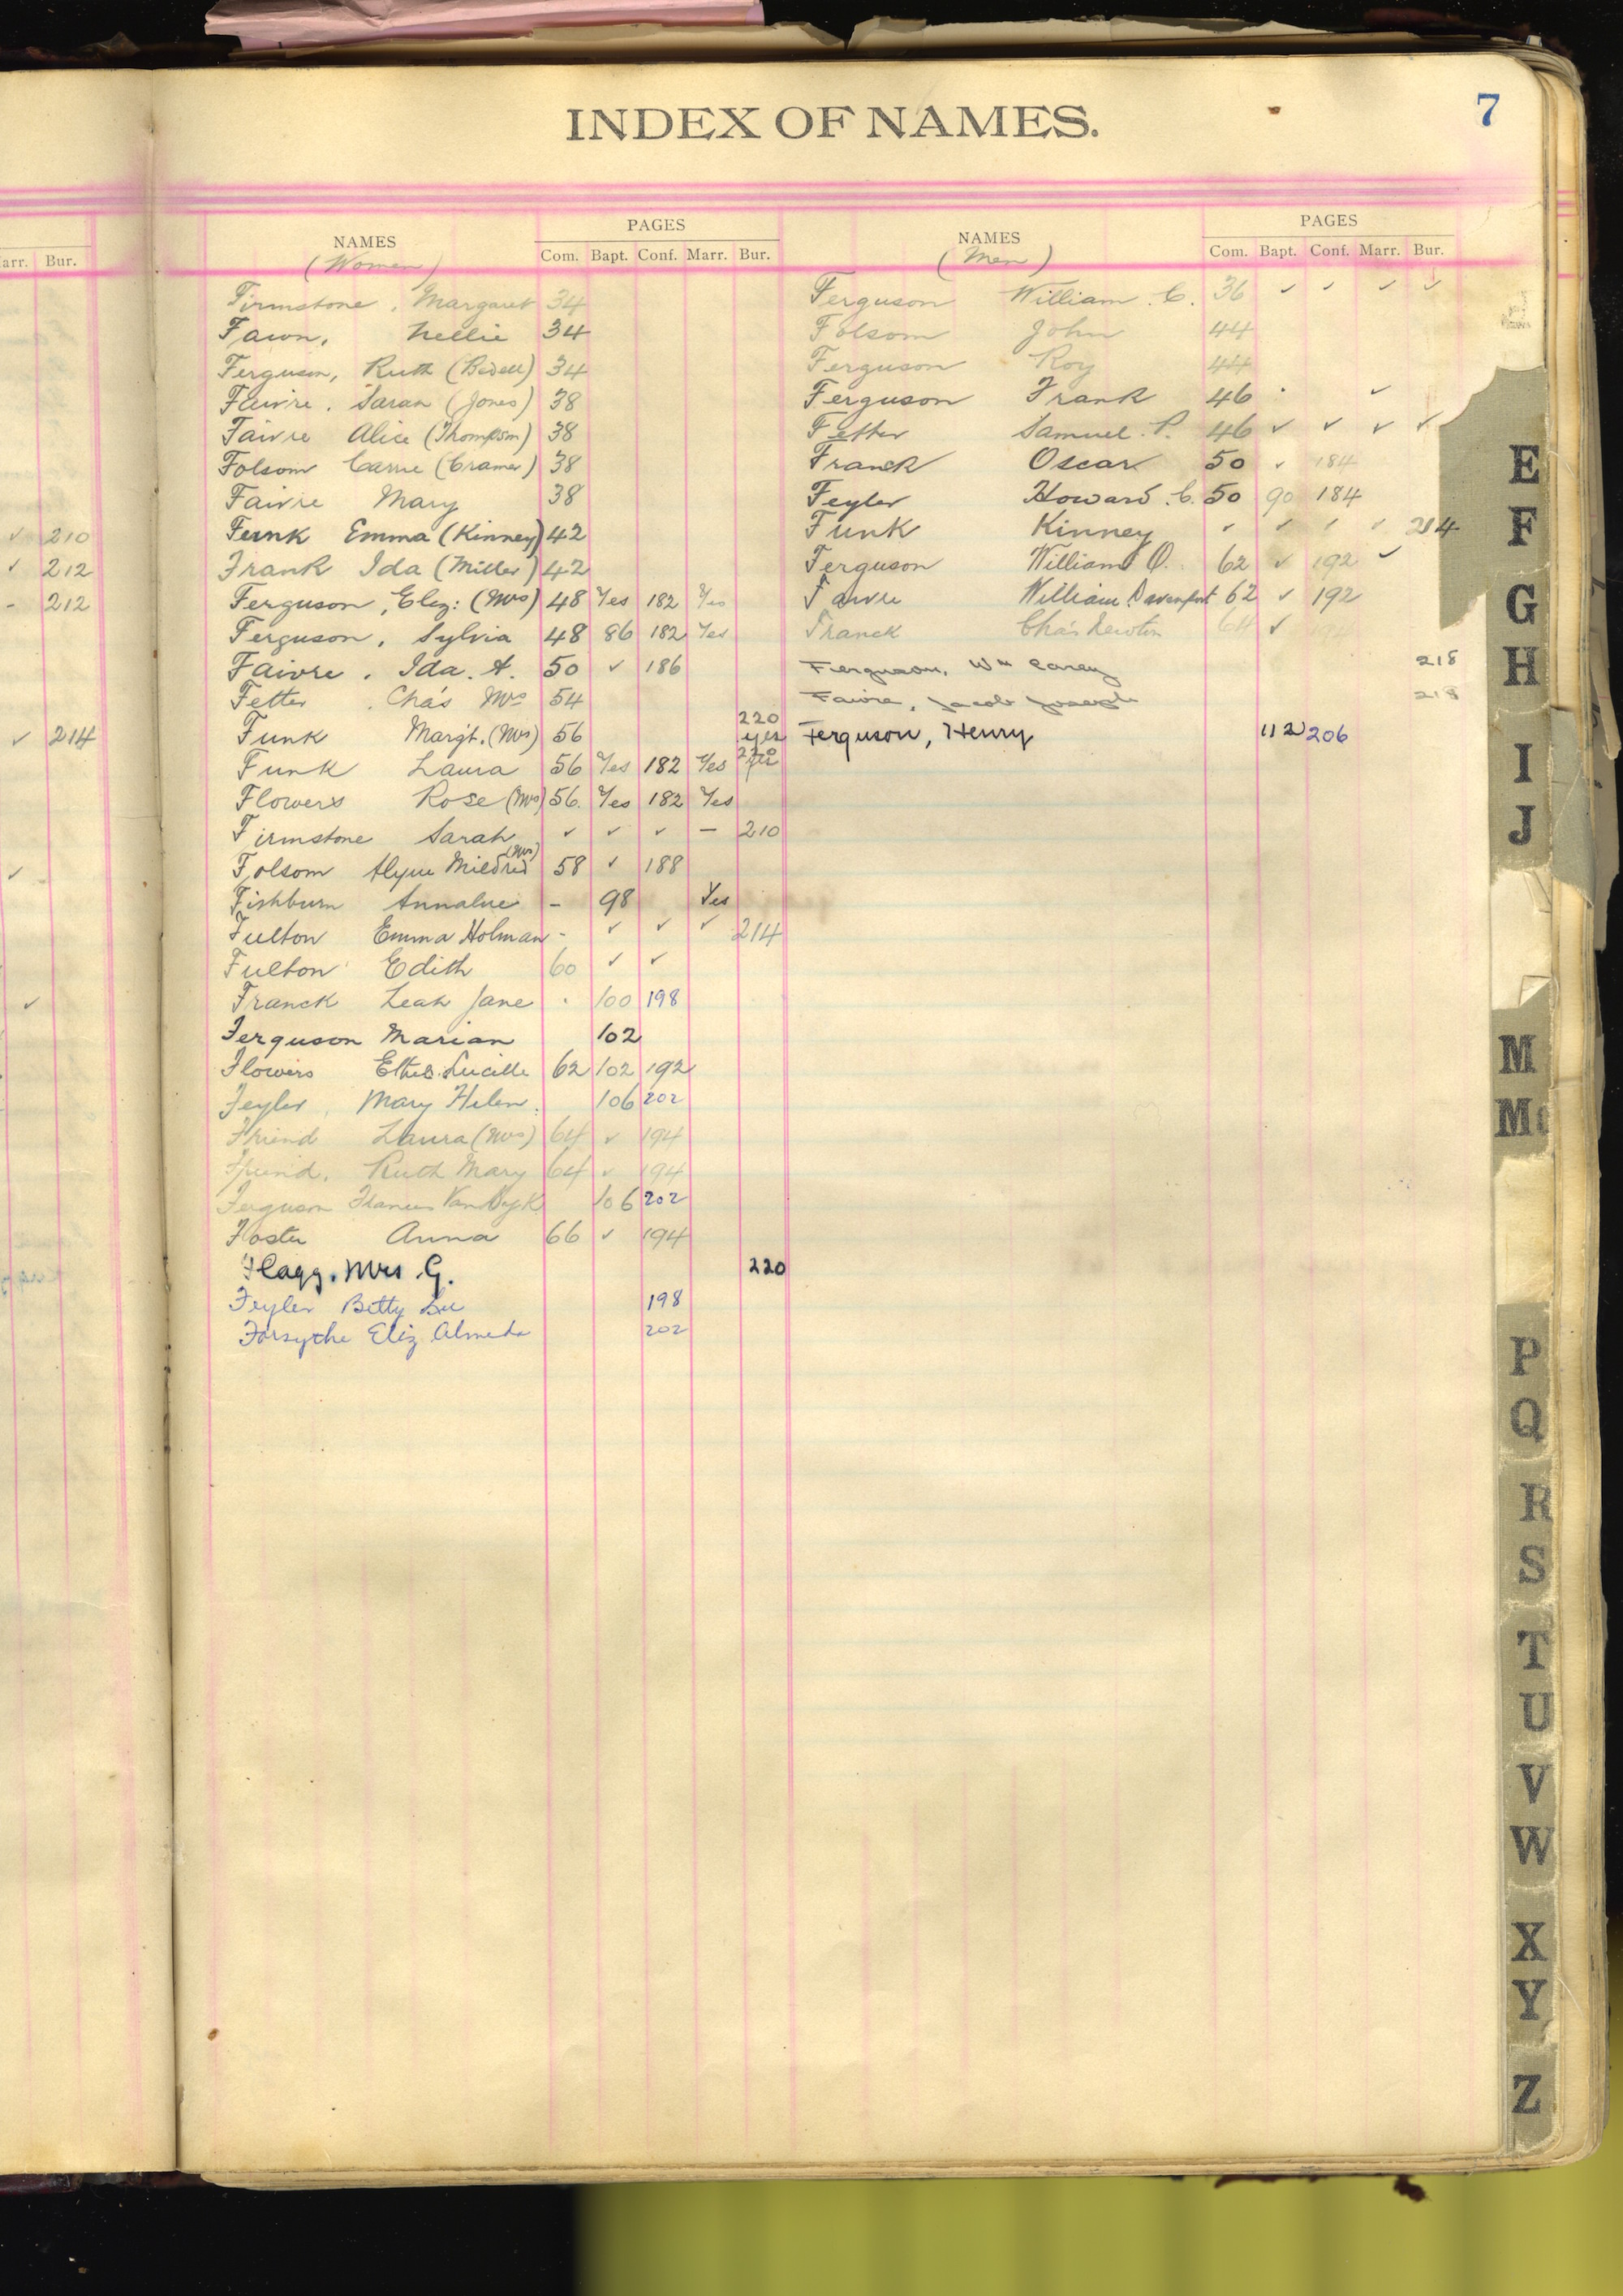 INDEX OF NAMES.
7
arr. Bur.
✓ 210
✓ 212
- 212
✓ 214
✓
✓
NAMES
(Women)
PAGES
Com. Bapt. Conf. Marr. Bur.
Firmstone, Margaret 34
Fawn, Nellie 34
Ferguson, Ruth (Bedell) 34
Faivre, Sarah (Jones) 38
Faivre Alice (Thompson) 38
Folsom Carrie (Cramer) 38
Faivre Mary 38
Funk Emma (Kinney) 42
Frank Ida (Miller) 42
Ferguson, Eliz: (Mrs) 48 Yes 182 Yes
Ferguson, Sylvia 48 86 182 Yes
Faivre, Ida. A. 50 ✓ 186
Fetter, Chas Mrs 54
Funk Margt. (Mrs) 56 220 yes
Funk Laura 56 Yes 182 Yes 220
Flowers Rose (Mrs) 56. Yes 182 Yes
Firmstone Sarah ✓ ✓ ✓ - 210
Folsom Alyne Mildred (Mrs) 58 ✓ 188
Fishburn Annalue - 98 Yes
Fulton Emma Holman - ✓ ✓ ✓ 214
Fulton Edith 60 ✓ ✓
Franck Leah Jane 100 198
Ferguson Marian 102
Flowers Ethel Lucille 62 102 192
Feyler, Mary Helen. 106 202
Friend Laura (Mrs) 64 ✓ 194
Friend, Ruth Mary 64 ✓ 194
Ferguson Frances VanDyk 106 202
Foster Anna 66 ✓ 194
Flagg, Mrs. G. 220
Feyler Betty Lu 198
Forsythe Eliz Almeda 202
NAMES
(Men)
PAGES
Com. Bapt. Conf. Marr. Bur.
Ferguson William. C. 36 ✓ ✓ ✓ ✓
Folsom John 44
Ferguson Roy 44
Ferguson Frank 46 ✓
Fetter Samuel. P. 46 ✓ ✓ ✓ ✓
Franck Oscar 50 ✓ 184
Feyler Howard. C. 50 90 184
Funk Kinney ✓ ✓ ✓ ✓ 214
Ferguson William O. 62 ✓ 192 ✓
Faivre William Davenport 62 ✓ 192
Franck Chas Newton 64 ✓ 194
Ferguson, Wm Carey 218
Faivre, Jacob Joseph 218
Ferguson, Henry 112 206
E
F
G
H
I
J
M
Mc
P
Q
R
S
T
U
V
W
X
Y
Z